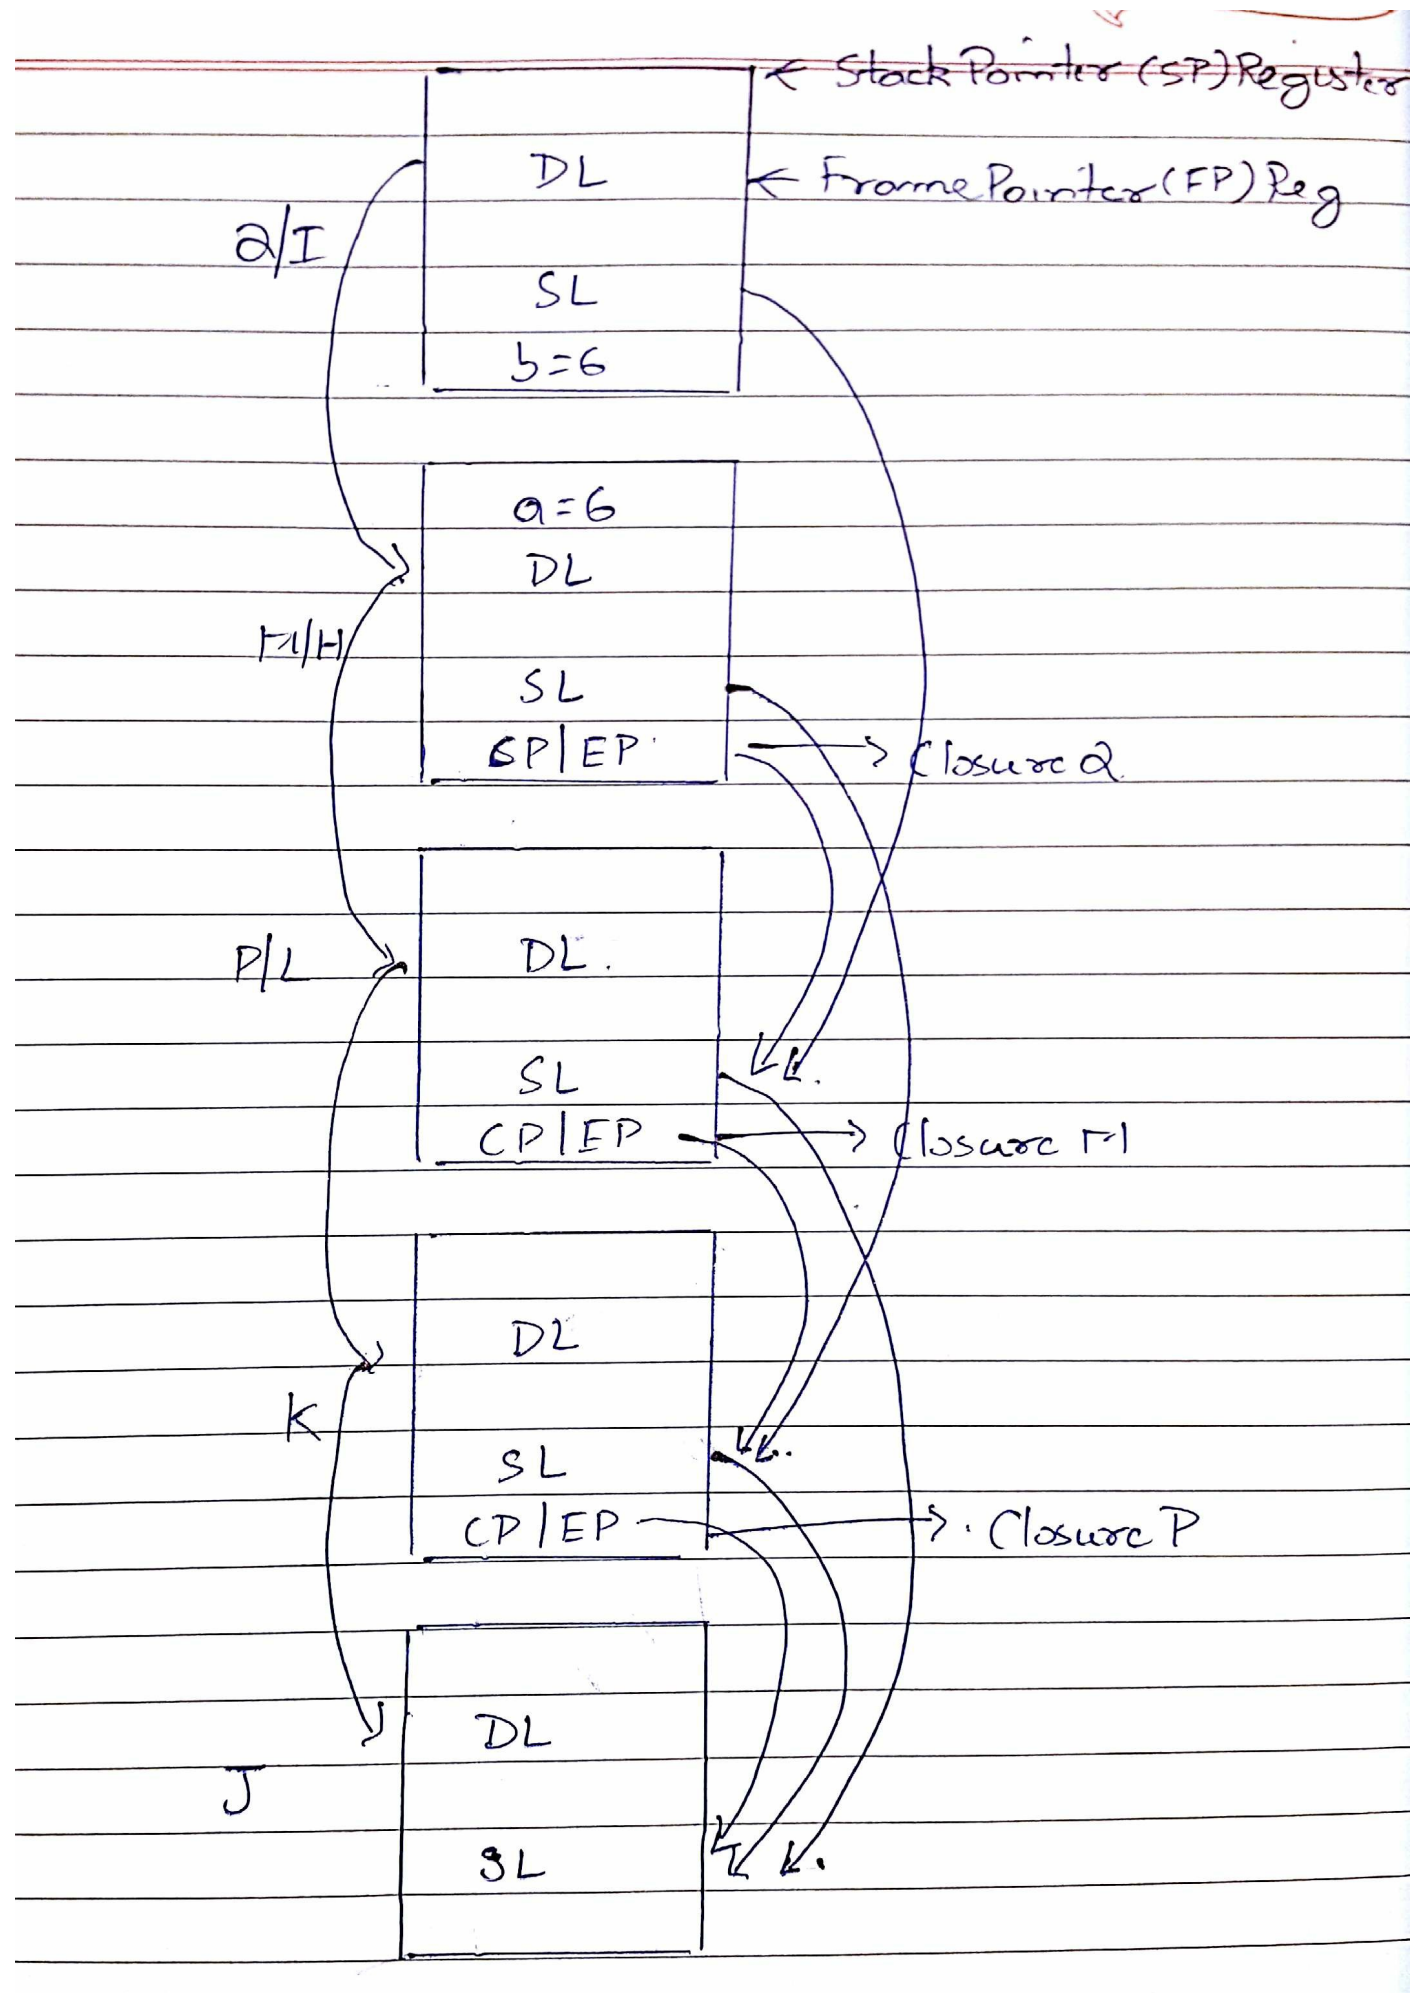 ← Stack Pointer (SP) Register
DL
← Frame Pointer (FP) Reg
Q/I
SL
b=6
a=6
DL
M/H
SL
SP|EP
→ Closure Q
P/L
DL.
SL
CP|EP
→ Closure M
DL
K
SL
CP|EP
→ . Closure P
DL
J
SL